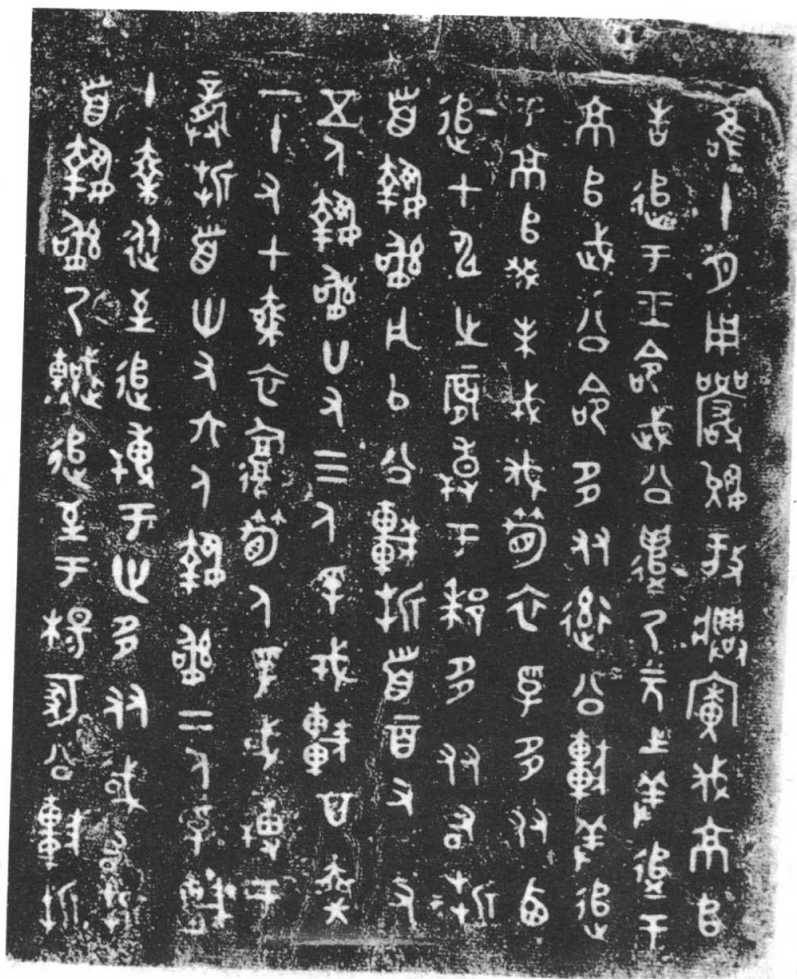 唯十月用嚴狁放興廣伐京師
告追于王命武公遣乃元士羞追于
京師武公命多友率公車羞追
于京師癸未戎伐筍衣俘多友西
追甲申之晨搏于郗多友有折
首執訊凡以公車折首二百又又
五人執訊廿又三人俘戎車百乘
一十又七乘衣復筍人俘或搏于
龔折首卅又六人執訊二人俘車
十乘從至追搏于世多友或有折
首執訊乃追至于楊冢公車折